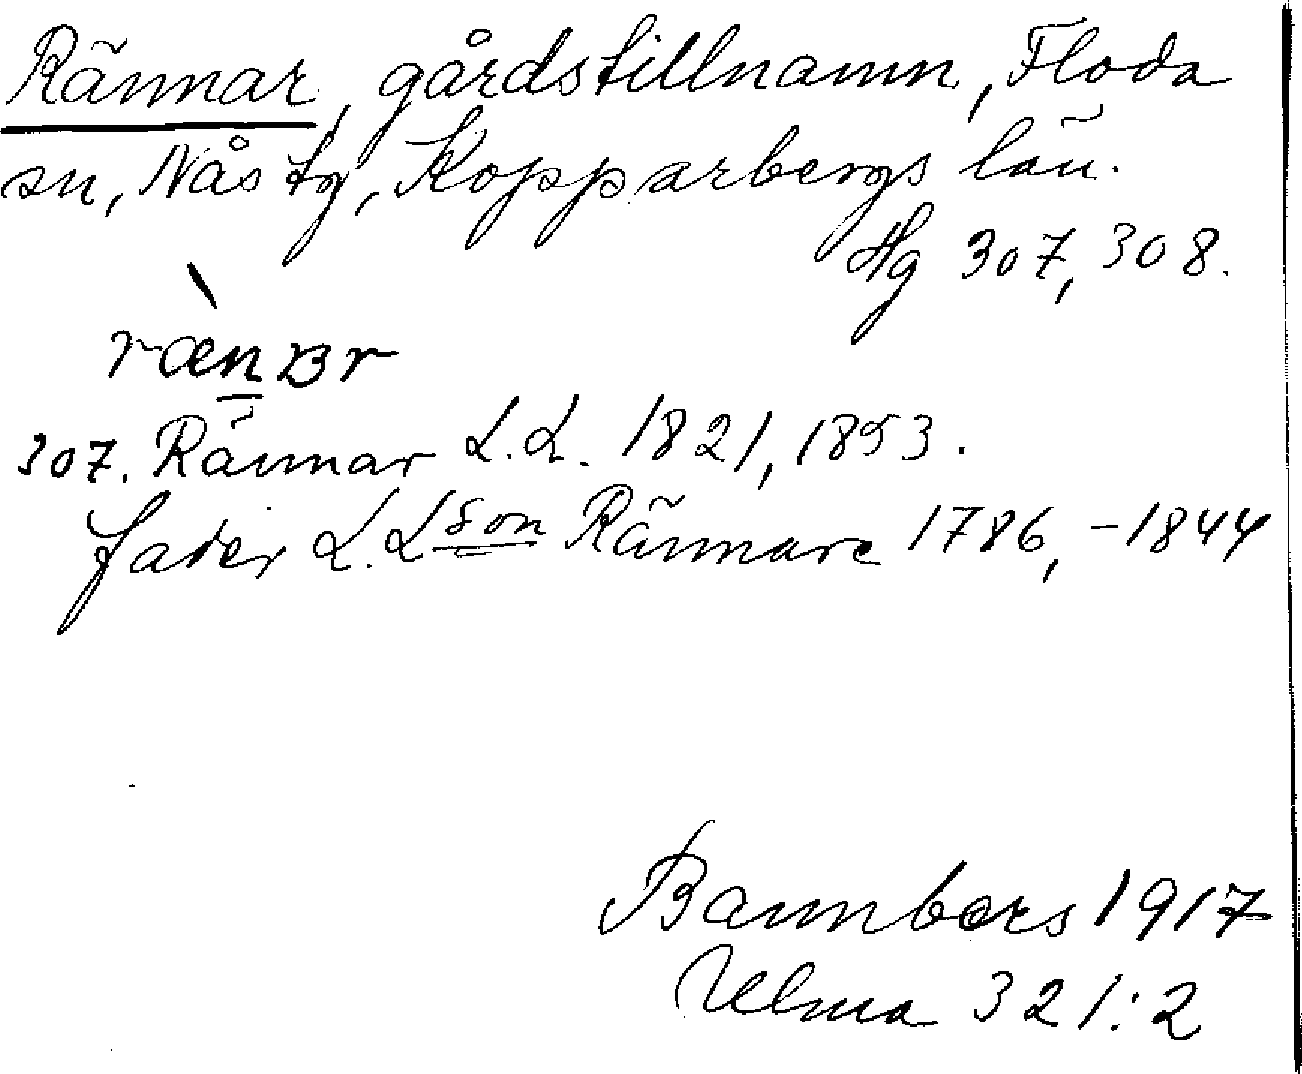 Rännar, gårdstillnamn, Floda
sn, Nås tg, Kopparbergs län.
Hg 307, 308.
rænᴃr
307. Rännar L.L. 1821, 1853.
fader L.Lson Rännare 1786, -1844
Bannbers 1917
Ulma 321:2